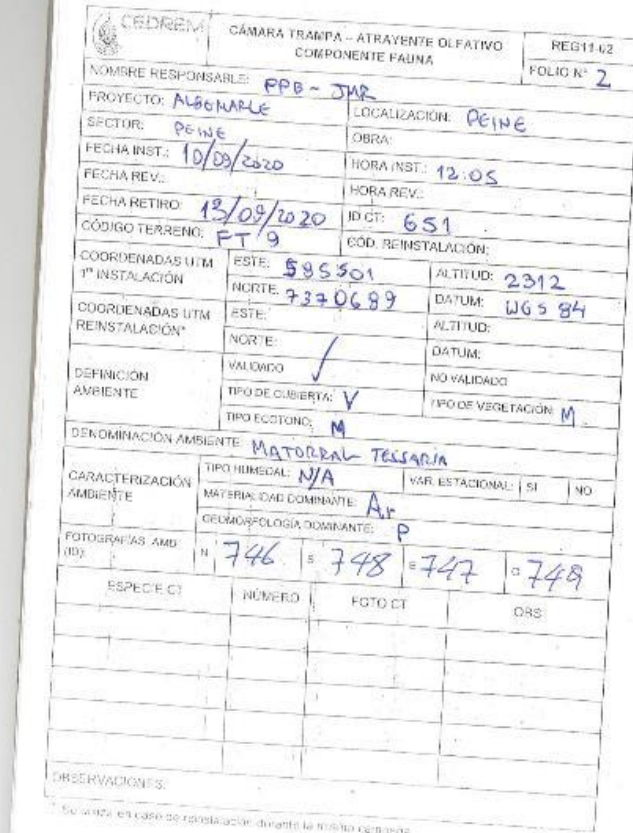 CEDREM
CÁMARA TRAMPA – ATRAYENTE OLFATIVO
COMPONENTE FAUNA
REG11-02
FOLIO N° 2
NOMBRE RESPONSABLE: PPB - JMR
PROYECTO: ALBEMARLE
LOCALIZACIÓN: PEINE
SECTOR: PEINE
OBRA:
FECHA INST.: 10/09/2020
HORA INST.: 12:05
FECHA REV.:
HORA REV.:
FECHA RETIRO: 13/09/2020
ID CT: 651
CÓDIGO TERRENO: FT 9
CÓD. REINSTALACIÓN:
COORDENADAS UTM
1° INSTALACIÓN
ESTE: 595501
ALTITUD: 2312
NORTE: 7370689
DATUM: WGS 84
COORDENADAS UTM
REINSTALACIÓN*
ESTE:
ALTITUD:
NORTE:
DATUM:
DEFINICIÓN
AMBIENTE
VALIDADO /
NO VALIDADO
TIPO DE CUBIERTA: V
TIPO DE VEGETACIÓN: M
TIPO ECOTONO: M
DENOMINACIÓN AMBIENTE: MATORRAL TESSARIA
CARACTERIZACIÓN
AMBIENTE
TIPO HUMEDAL: N/A
VAR. ESTACIONAL: SI NO
MATERIALIDAD DOMINANTE: Ar
GEOMORFOLOGÍA DOMINANTE: P
FOTOGRAFÍAS AMB
(ID):
N 746 S 748 E 747 O 749
ESPECIE CT NÚMERO FOTO CT OBS
OBSERVACIONES:
* Se utiliza en caso de reinstalación durante la misma campaña